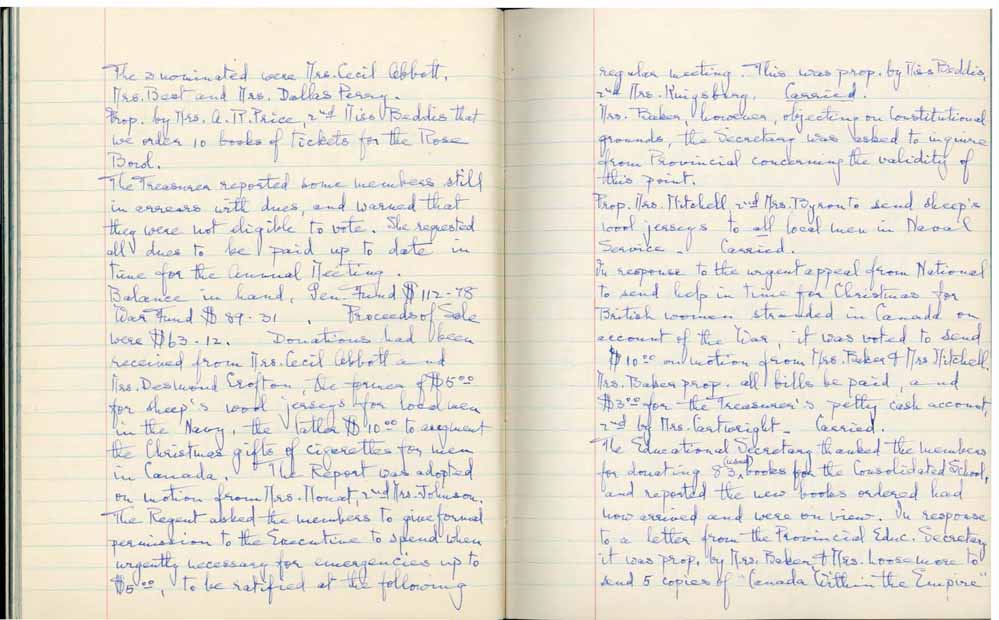 The 3 nominated were Mrs. Cecil Abbott,
Mrs. Best and Mrs. Dallas Perry.
Prop. by Mrs. A. R. Price, 2nd Miss Beddis that
we order 10 books of tickets for the Rose
Bowl.
The Treasurer reported some members still
in arrears with dues, and warned that
they were not eligible to vote. She requested
all dues to be paid up to date in
time for the Annual Meeting.
Balance in hand, Gen. Fund $112.78
War Fund $89.31. Proceeds of Sale
were $63.12. Donations had been
received from Mrs. Cecil Abbott and
Mrs. Desmond Crofton, the former of $5.00
for sheep's wool jerseys for local men
in the Navy, the latter $10.00 to augment
the Christmas gifts of cigarettes for men
in Canada. The Report was adopted
on motion from Mrs. Mouat, 2nd Mrs. Johnson.
The Regent asked the members to give formal
permission to the Executive to spend when
urgently necessary for emergencies up to
$5.00, to be ratified at the following
regular meeting. This was prop. by Miss Beddis,
2nd Mrs. Kingsbury. Carried.
Mrs. Baker, however, objecting on Constitutional
grounds, the Secretary was asked to inquire
from Provincial concerning the validity of
this point.
Prop. Mrs. Mitchell 2nd Mrs. Byron to send sheep's
wool jerseys to all local men in Naval
Service. Carried.
In response to the urgent appeal from National
to send help in time for Christmas for
British women stranded in Canada on
account of the War, it was voted to send
$10.00 on motion from Mrs. Baker & Mrs Mitchell.
Mrs. Baker prop. all bills be paid, and
$3.00 for the Treasurer's petty cash account,
2nd by Mrs. Cartwright. Carried.
The Educational Secretary thanked the members
for donating 83 used books for the Consolidated School,
and reported the new books ordered had
now arrived and were on view. In response
to a letter from the Provincial Educ. Secretary
it was prop. by Mrs. Baker & Mrs. Loosemore to
send 5 copies of "Canada Within the Empire"